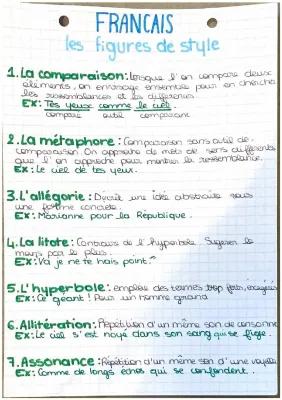 FRANCAIS
les figures de style
1. La comparaison: lorsque l'on compare deux
éléments, on envisage ensemble pour en cherche
les ressemblances et les différences
EX: Tes yeux comme le ciel.
comparé outil comparant
2. La métaphore: Comparaison sans outil de
comparaison. On rapproche de mots de sens différents
que l'on rapproche pour montrer la ressemblance.
EX: Le ciel de tes yeux.
3. L'allégorie: Décrit une idée abstraite sous
une forme concrète.
EX: Marianne pour la République.
4. La litote: Contraire de l'hyperbole. Suggérer le
moins par le plus.
EX: Va je ne te hais point."
5. L'hyperbole: emploie des termes trop forts, exagérés
EX: Ce géant! Pour un homme grand
6. Allitération: Répétition d'un même son de consonne
EX: Le ciel s'est noyé dans son sang qui se fige.
7. Assonance: Répétition d'un même son d'une voyelle
EX: Comme de longs échos qui se confondent.